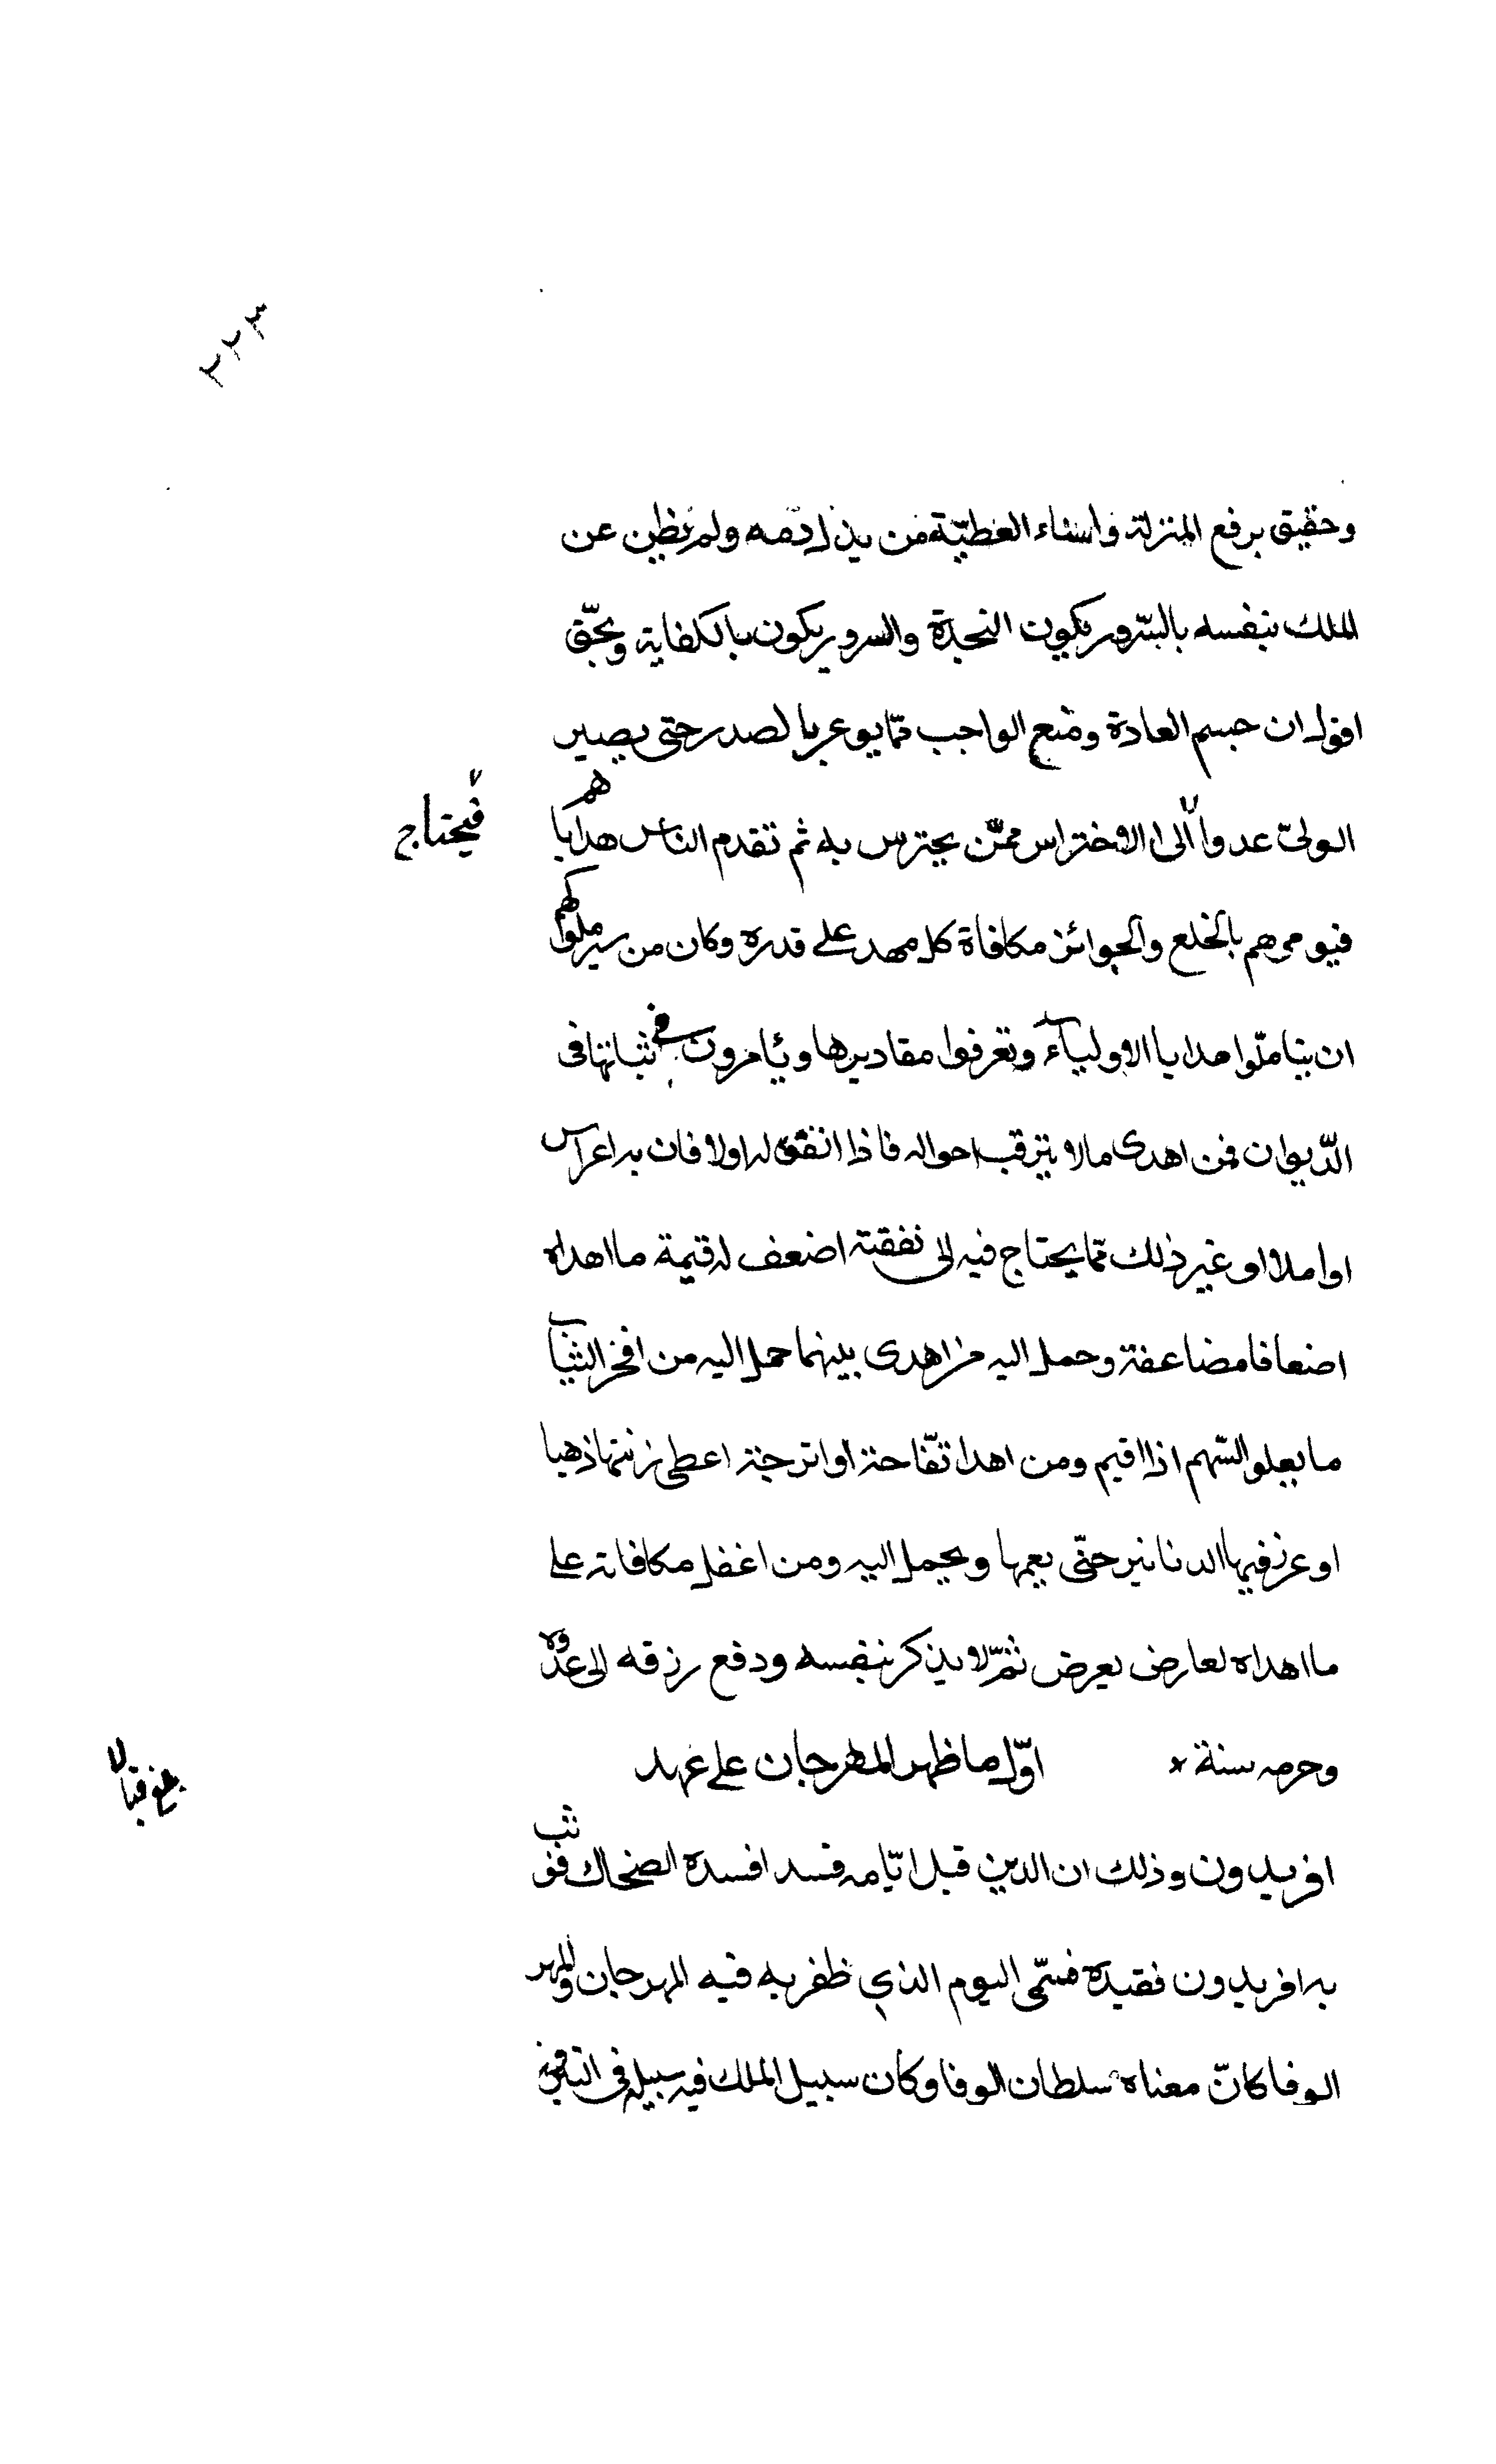 ٢٢٣
وحقيق برفع المنزلة واسناء العطيّة من بذل دمه ولم يظن عن
الملك بنفسه بالسّرور يكون النجدة والسرور يكون بالكفاية وبحقّ
اقول ان حسم العادة ومنع الواجب ممّا يوعر بالصدر حتى يصير
الوليّ عدوا الى الاحتراس ممّن يحترس به ثم تقدم الناس هداياهم
فيحتاج
فيومر هم بالخلع والجوائز مكافاة كل مهد على قدره وكان من سير ملوكهم
ان يتاملّوا هدايا الاولياء وتعرفوا مقاديرها وئامرون في ثباتها فى
الدّيوان فمن اهدى مالا يترقب احواله فاذا انفق له اولا فان به اعراس
او املاا او غير ذلك ممّا يحتاج فيه الى نفقته اضعف له قيمة ما اهداه
اضعافا مضاعفة وحمل اليه من اهدى بينهما حمل اليه من افخر الثياب
ما يعلو السّهم اذا اقيم ومن اهدا تفّاحة او اترجة اعطى زنتها ذهبا
او غرز فيها الدنانير حتّى يعمها ويحمل اليه ومن اغفل مكافاته على
ما اهداه لعارض يعرض ثمّ لا يذكر بنفسه ودفع رزقه الى عدوّه
وحرمه سنة * اوّل ما ظهر المهرجان على عهد
افريدون وذلك ان الدين قبل ايّامه فسد افسده الضحاك فوثب
به افريدون فقيده فسمّى اليوم الذي ظفر به فيه المهرجان والمهر
الوفا كانّ معناه سلطان الوفا وكان سبيل الملك فيه سبيله فى